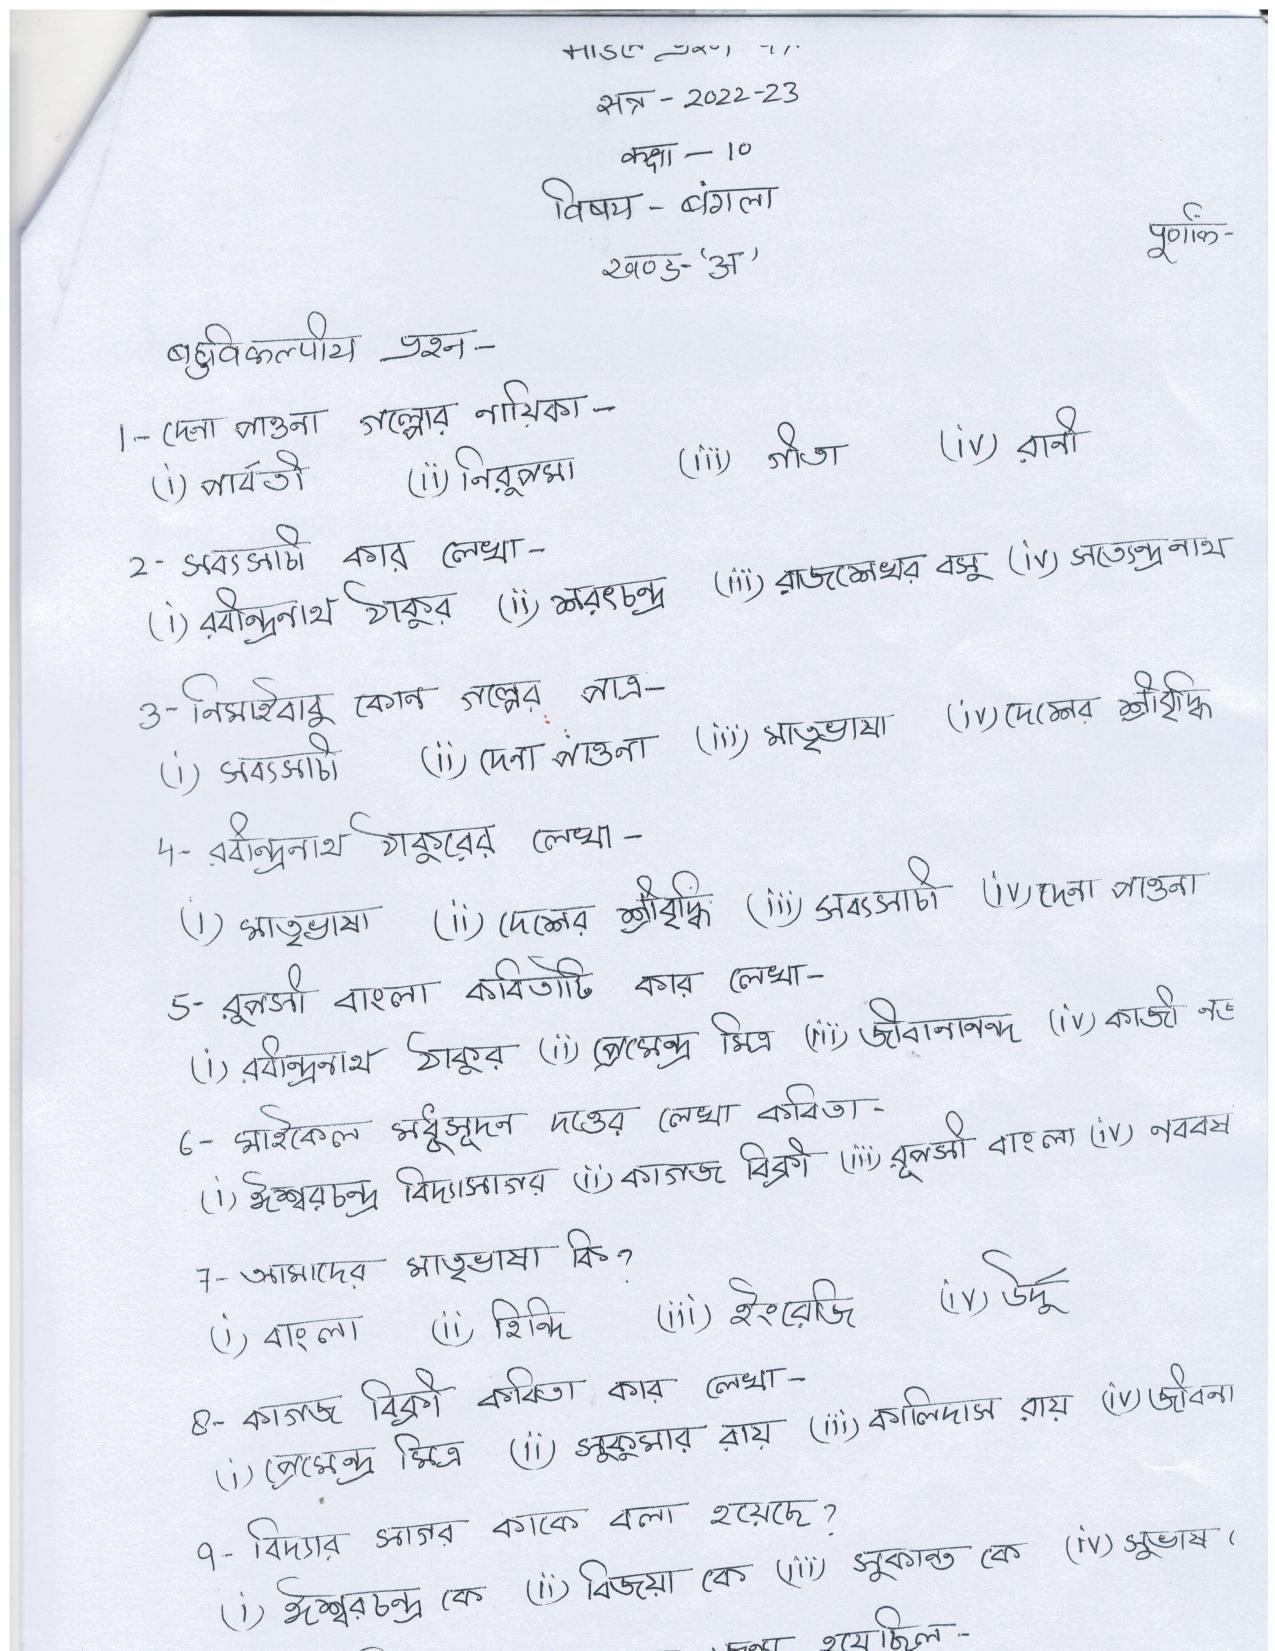 सत्र - 2022-23
कक्षा - 10
विषय - बंगला
पूर्णांक-
खण्ड-'अ'
बहुविकल्पीय प्रश्न-
1- দেনা পাওনা গল্পোর নায়িকা -
(i) পার্বতী (ii) নিরুপমা (iii) গীতা (iv) রানী
2- সব্যসাচী কার লেখা-
(i) রবীন্দ্রনাথ ঠাকুর (ii) শরৎচন্দ্র (iii) রাজশেখর বসু (iv) সত্যেন্দ্রনাথ
3- নিমাইবাবু কোন গল্পের পাত্র-
(i) সব্যসাচী (ii) দেনা পাওনা (iii) মাতৃভাষা (iv) দেশের শ্রীবৃদ্ধি
4- রবীন্দ্রনাথ ঠাকুরের লেখা -
(i) মাতৃভাষা (ii) দেশের শ্রীবৃদ্ধি (iii) সব্যসাচী (iv) দেনা পাওনা
5- রুপসী বাংলা কবিতাটি কার লেখা-
(i) রবীন্দ্রনাথ ঠাকুর (ii) প্রেমেন্দ্র মিত্র (iii) জীবানানন্দ (iv) কাজী
6- মাইকেল মধুসূদন দত্তের লেখা কবিতা -
(i) ঈশ্বরচন্দ্র বিদ্যাসাগর (ii) কাগজ বিক্রী (iii) রূপসী বাংলা (iv) নববর্ষ
7- আমাদের মাতৃভাষা কি?
(i) বাংলা (ii) হিন্দি (iii) ইংরেজি (iv) উর্দু
8- কাগজ বিক্রী কবিতা কার লেখা -
(i) প্রেমেন্দ্র মিত্র (ii) সুকুমার রায় (iii) কালিদাস রায় (iv) জীবনা
9- বিদ্যার সাগর কাকে বলা হয়েছে?
(i) ঈশ্বরচন্দ্র কে (ii) বিজয়া কে (iii) সুকান্ত কে (iv) সুভাষ
হয়েছিল -